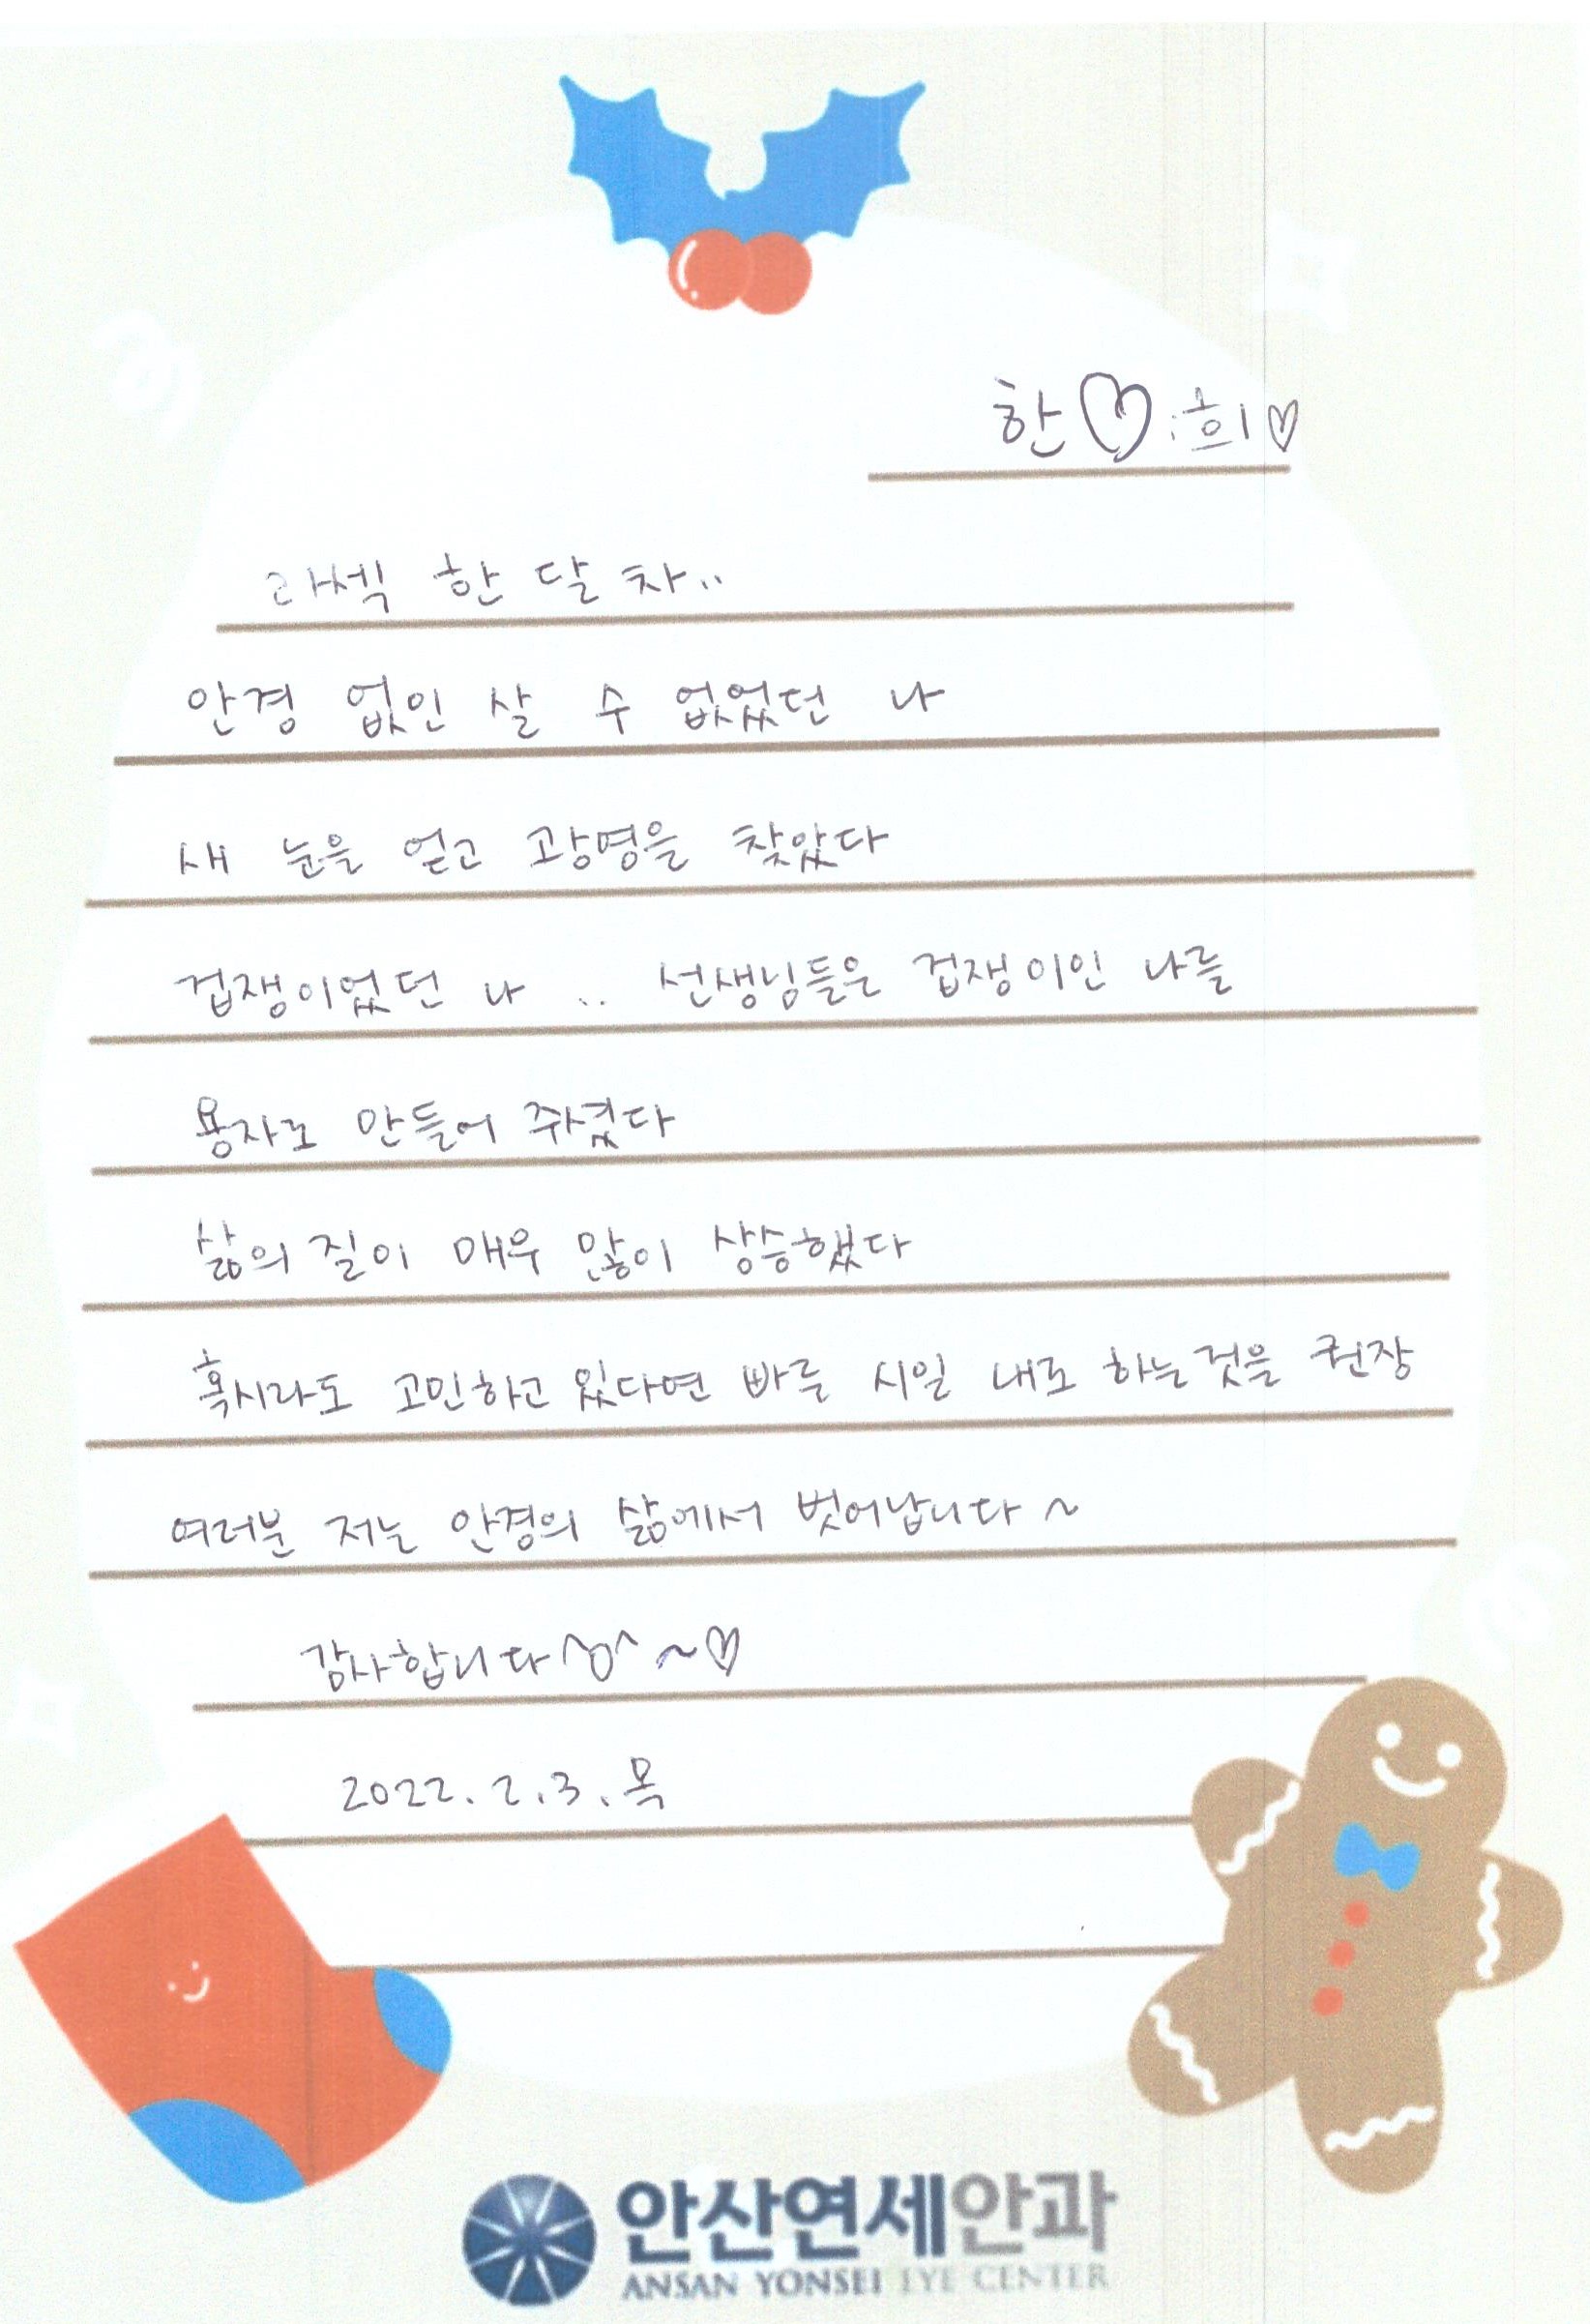 한♡희♡
라섹 한 달 차..
안경 없인 살 수 없었던 나
새 눈을 얻고 광명을 찾았다
겁쟁이었던 나 .. 선생님들은 겁쟁이인 나를
용자로 만들어 주셨다
삶의 질이 매우 많이 상승했다
혹시라도 고민하고 있다면 빠른 시일 내로 하는것을 권장
여러분 저는 안경의 삶에서 벗어납니다~
감사합니다^o^ ~♡
2022. 2. 3. 목
안산연세안과
ANSAN YONSEI EYE CENTER